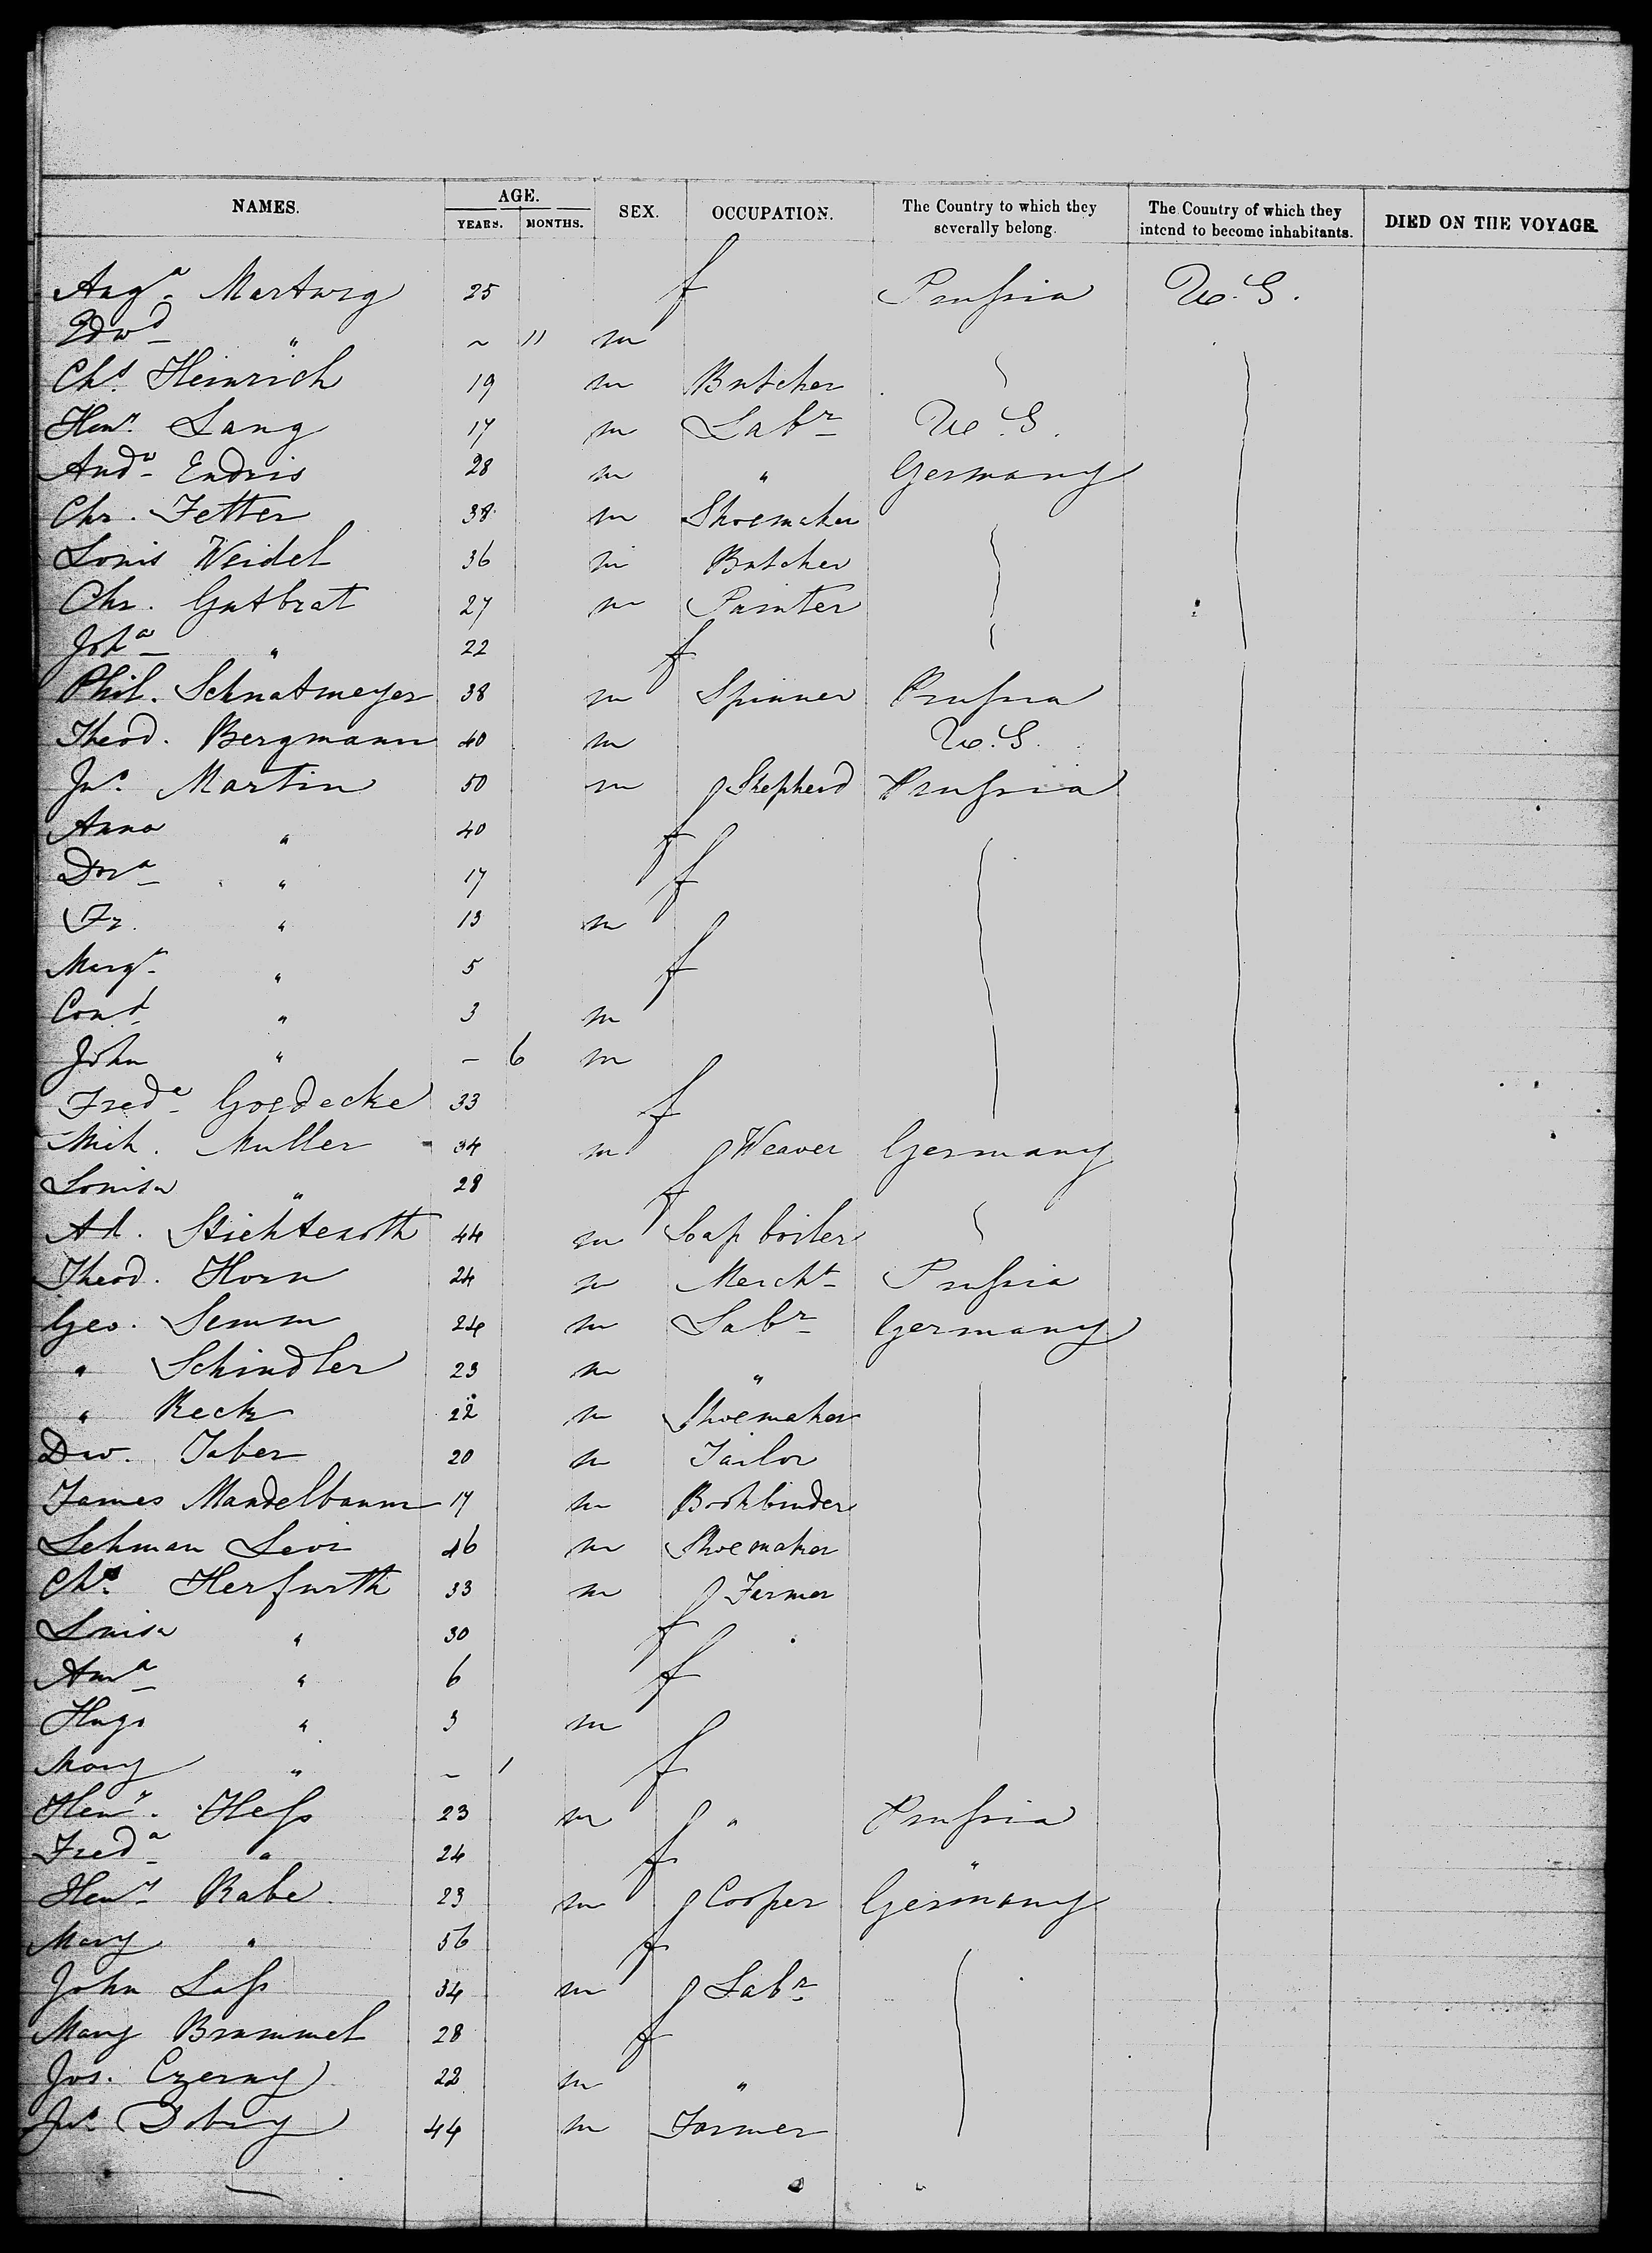 NAMES. AGE. SEX. OCCUPATION. The Country to which they severally belong. The Country of which they intend to become inhabitants. DIED ON THE VOYAGE.
YEARS. MONTHS.
Auga. Martwig 25 f Prussia U.S.
Edwd " ~ 11 m
Chs. Heinrich 19 m Butcher
Heny. Lang 17 m Labr U.S.
Andw Endris 28 m " Germany
Chr. Fetter 38 m Shoemaker
Louis Weidel 36 m Butcher
Chr. Gutbrat 27 m Painter
Joha " 22 f
Phil. Schnatmeyer 38 m Spinner Prussia
Theod. Bergmann 40 m U.S.
Jno. Martin 50 m Shepherd Prussia
Anna " 40 f
Dora " 17 f
Fr. " 13 m
Margt " 5 f
Cond " 3 m
John " – 6 m
Freda Goedecke 33 f
Mich. Muller 34 m Weaver Germany
Louisa " 28 f
Ad. Stichtenoth 44 m Soap boiler
Theod. Horn 24 m Mercht Prussia
Geo. Semm 24 m Labr Germany
" Schindler 23 m "
" Reck 22 m Shoemaker
Dw. Taber 20 m Tailor
James Mandelbaum 17 m Bookbinder
Lehman Levi 46 m Shoemaker
Chs. Herfurth 33 m Farmer
Luisa " 30 f
Ama " 6 f
Hugo " 3 m
Mary " ~ 1 f
Heny. Hess 23 m " Prussia
Freda " 24 f "
Heny Rabe 23 m Cooper Germany
Mary " 56 f
John Lass 34 m Labr
Mary Brammel 28 f
Jos. Czerny 22 m "
Jno. Dobry 44 m Farmer